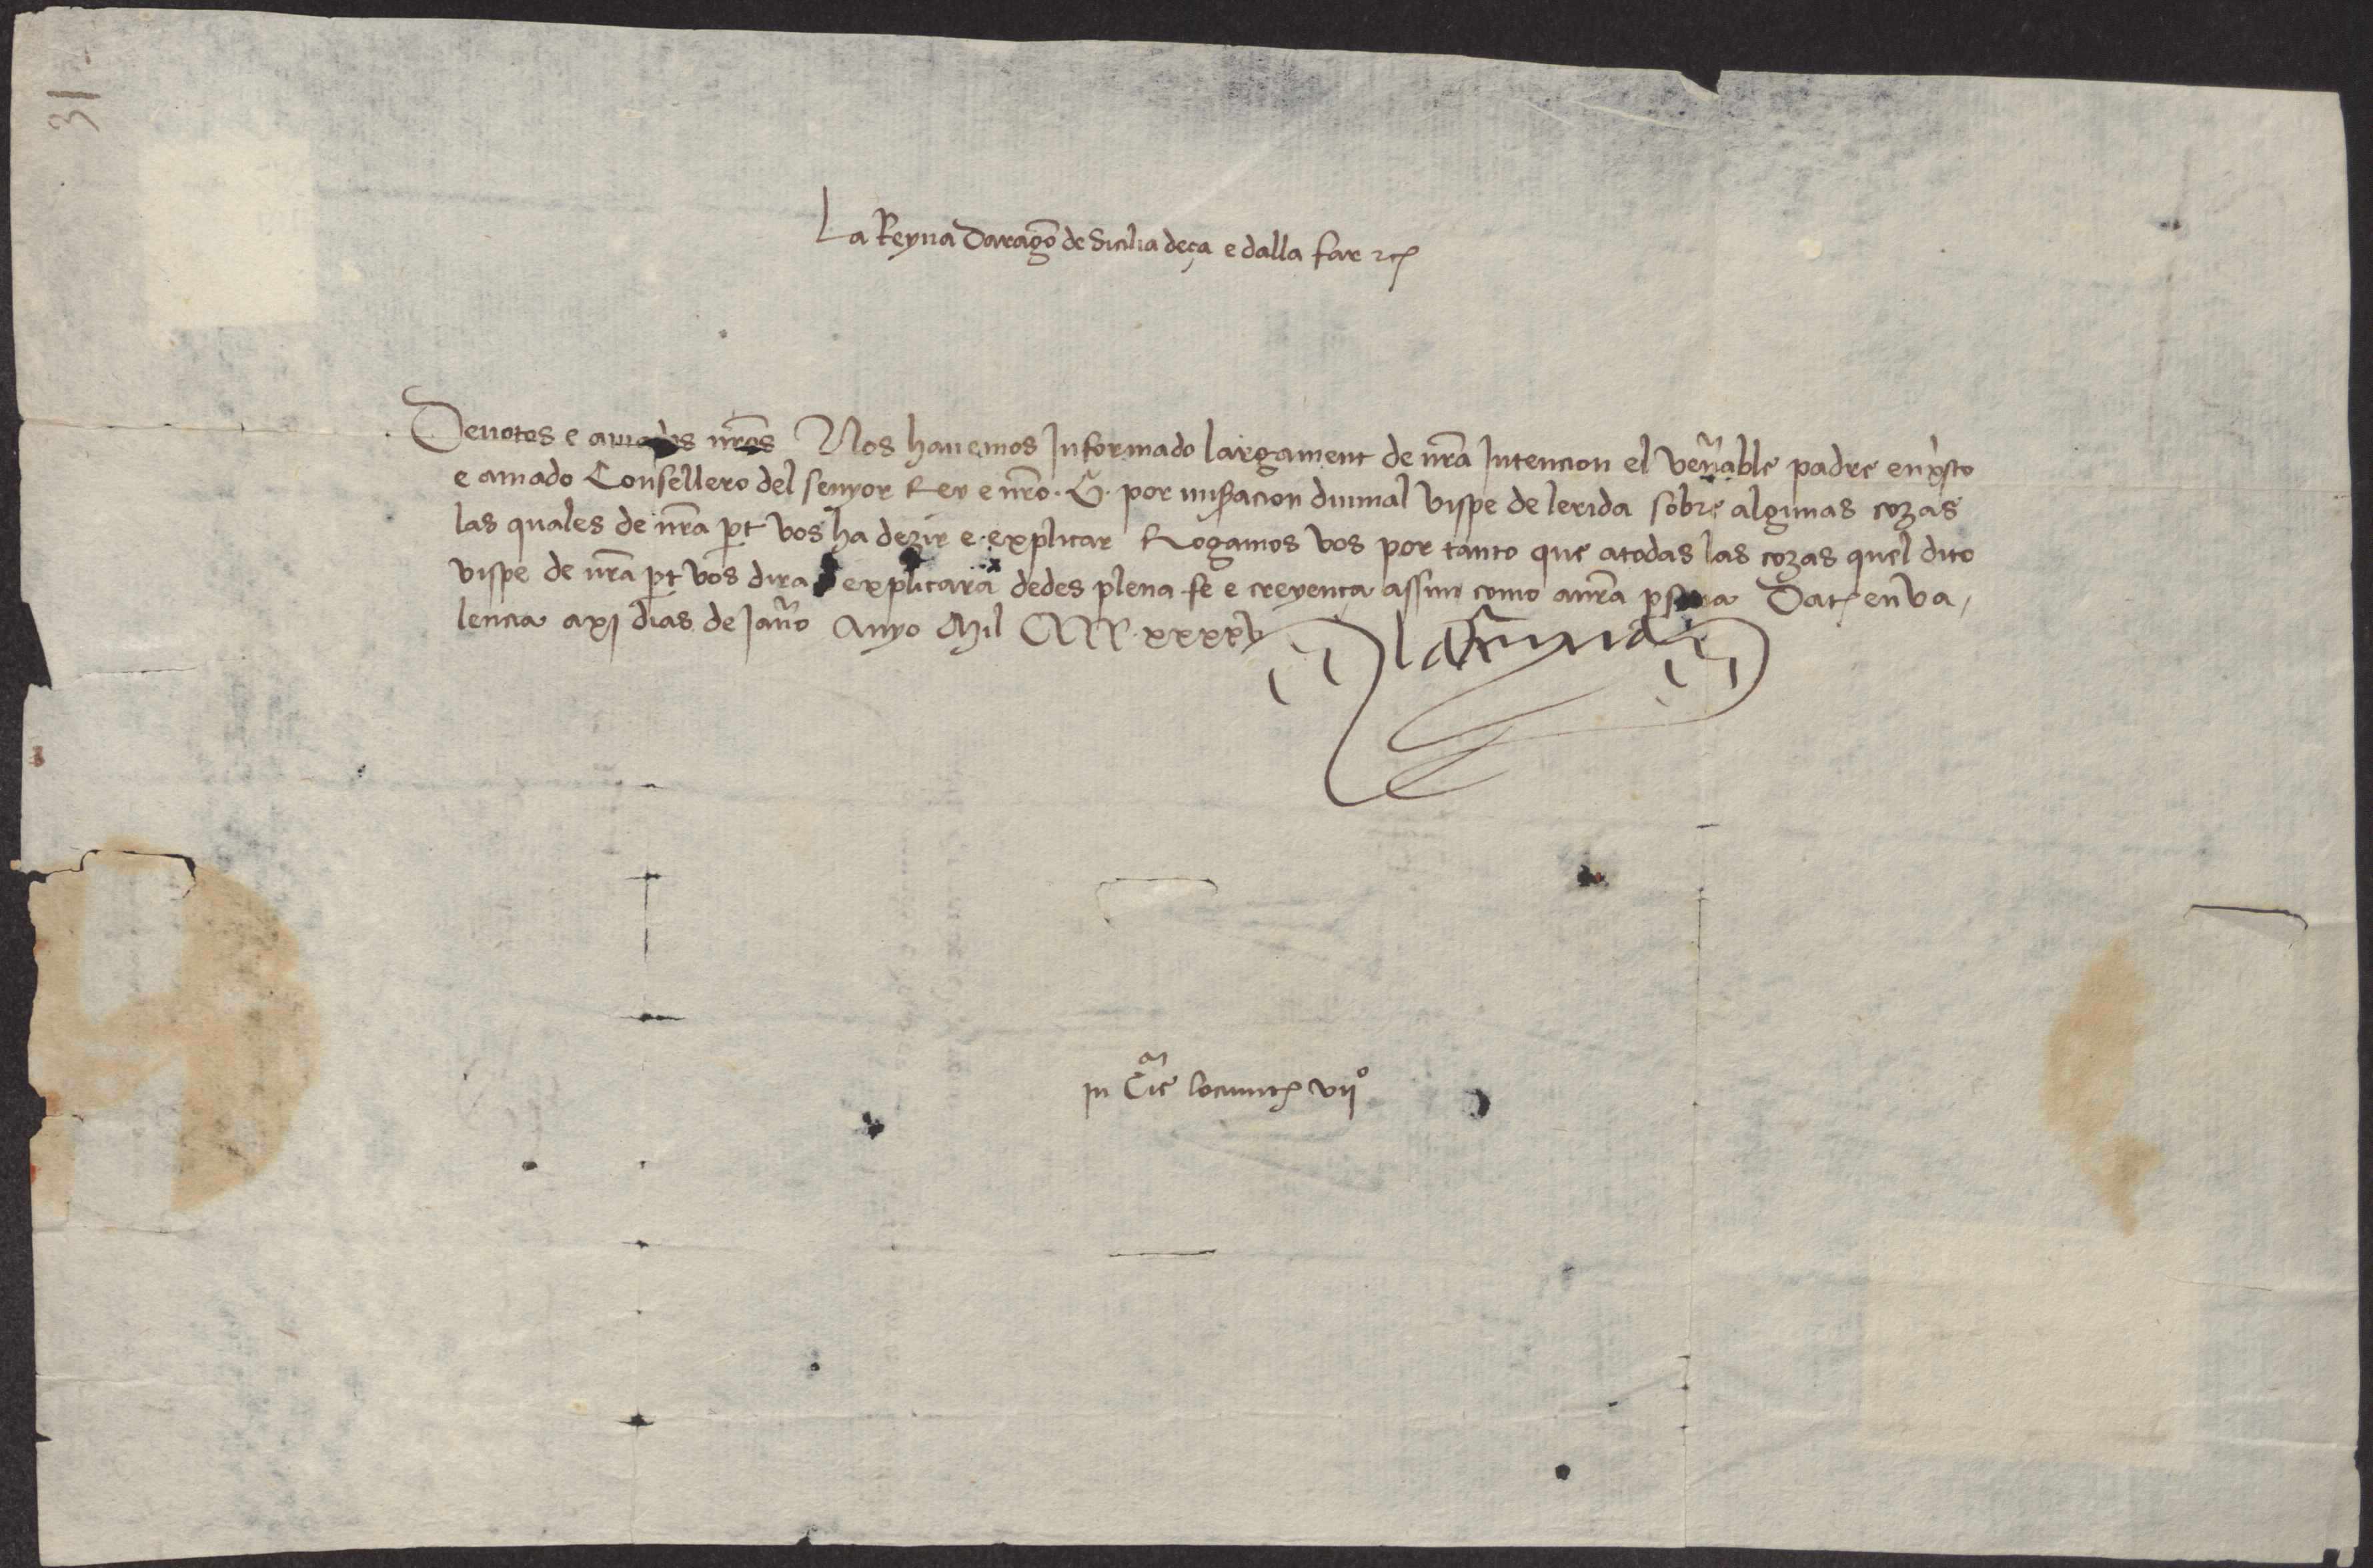 31
La Reyna Daragō de Sicilia deça e dalla far etc̄
Deuotos e amados nr̄os Nos hauemos Informado largament de nr̄a Intencion el ven̄able padre en xp̄sto
e amado Consellero del senyor Rey e nr̄o .G̃. por mis̃acion diuinal bispe de lerida sobre algunas cozas
las quales de nr̄a p̄t vos ha dezir e explicar Rogamos vos por tanto que a todas las cozas quel dito
bispe de nr̄a p̄t vos dira explicara dedes plena fe e creyença assin como a nr̄a p̄sona Dat̄ en Va,
lencia a xj dias de Jan̄o Anyo Mil CCCC.xxxxv
la Reyna
In Cū̄e locumt̄ vijº